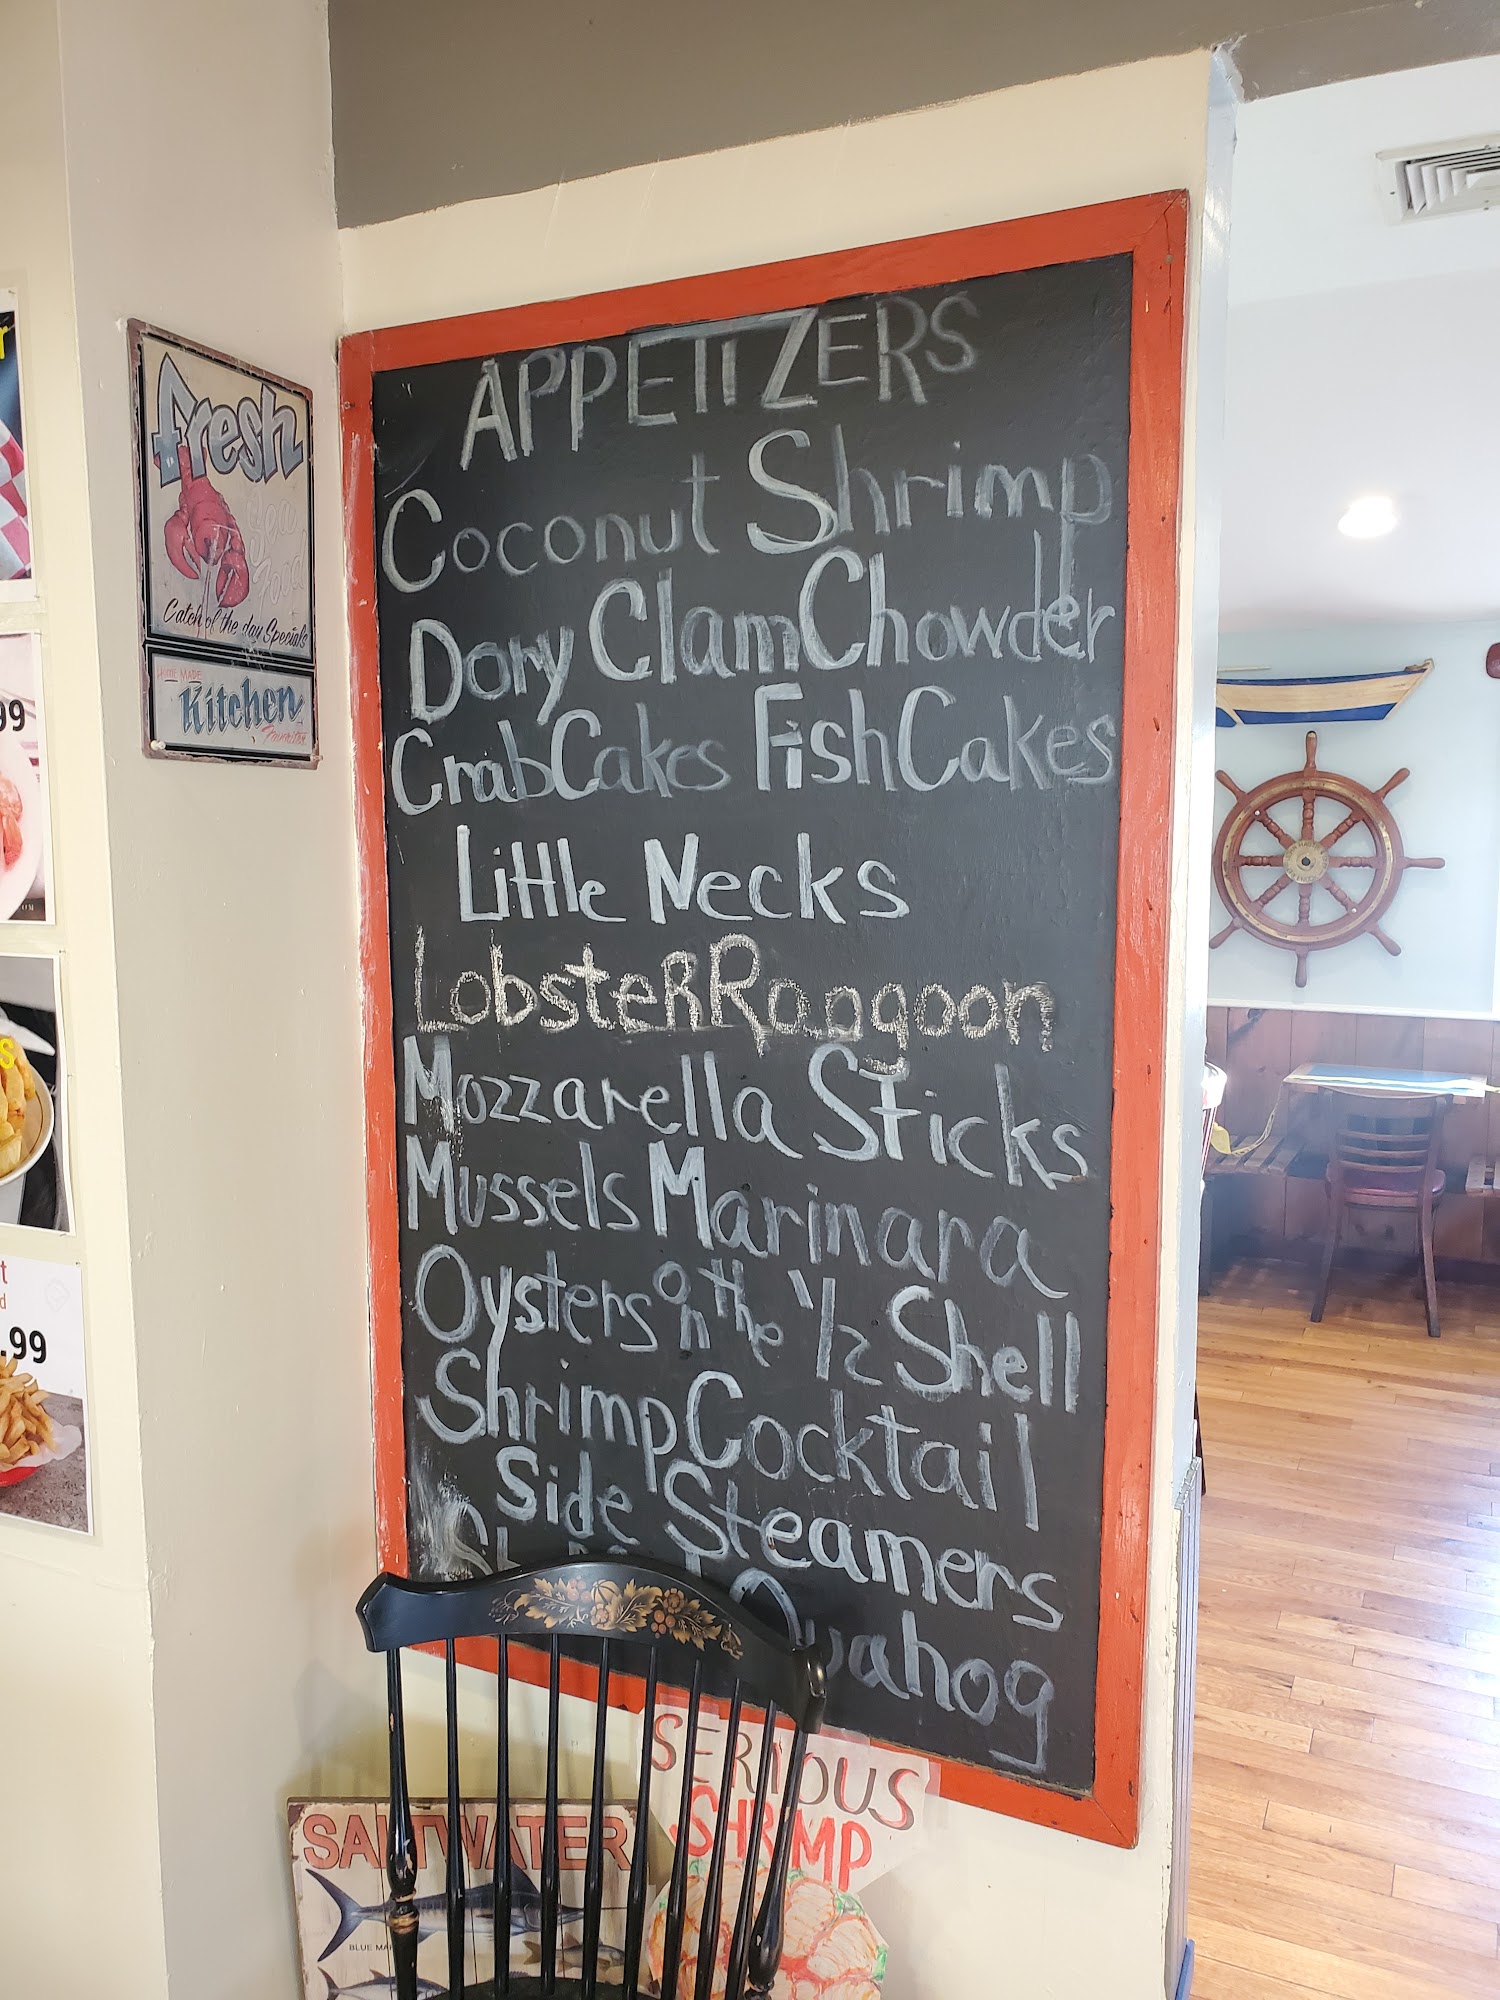 fresh
Sea
Food
Catch of the day Specials
HOME MADE
Kitchen
99
s
t
d
.99
APPETIZERS
Coconut Shrimp
Dory Clam Chowder
Crab Cakes Fish Cakes
Little Necks
LobsteR Rangoon
Mozzarella STicks
Mussels Marinara
Oysters on the 1/2 Shell
Shrimp Cocktail
Side Steamers
Quahog
SERIOUS
SHRIMP
SALTWATER
BLUE MA